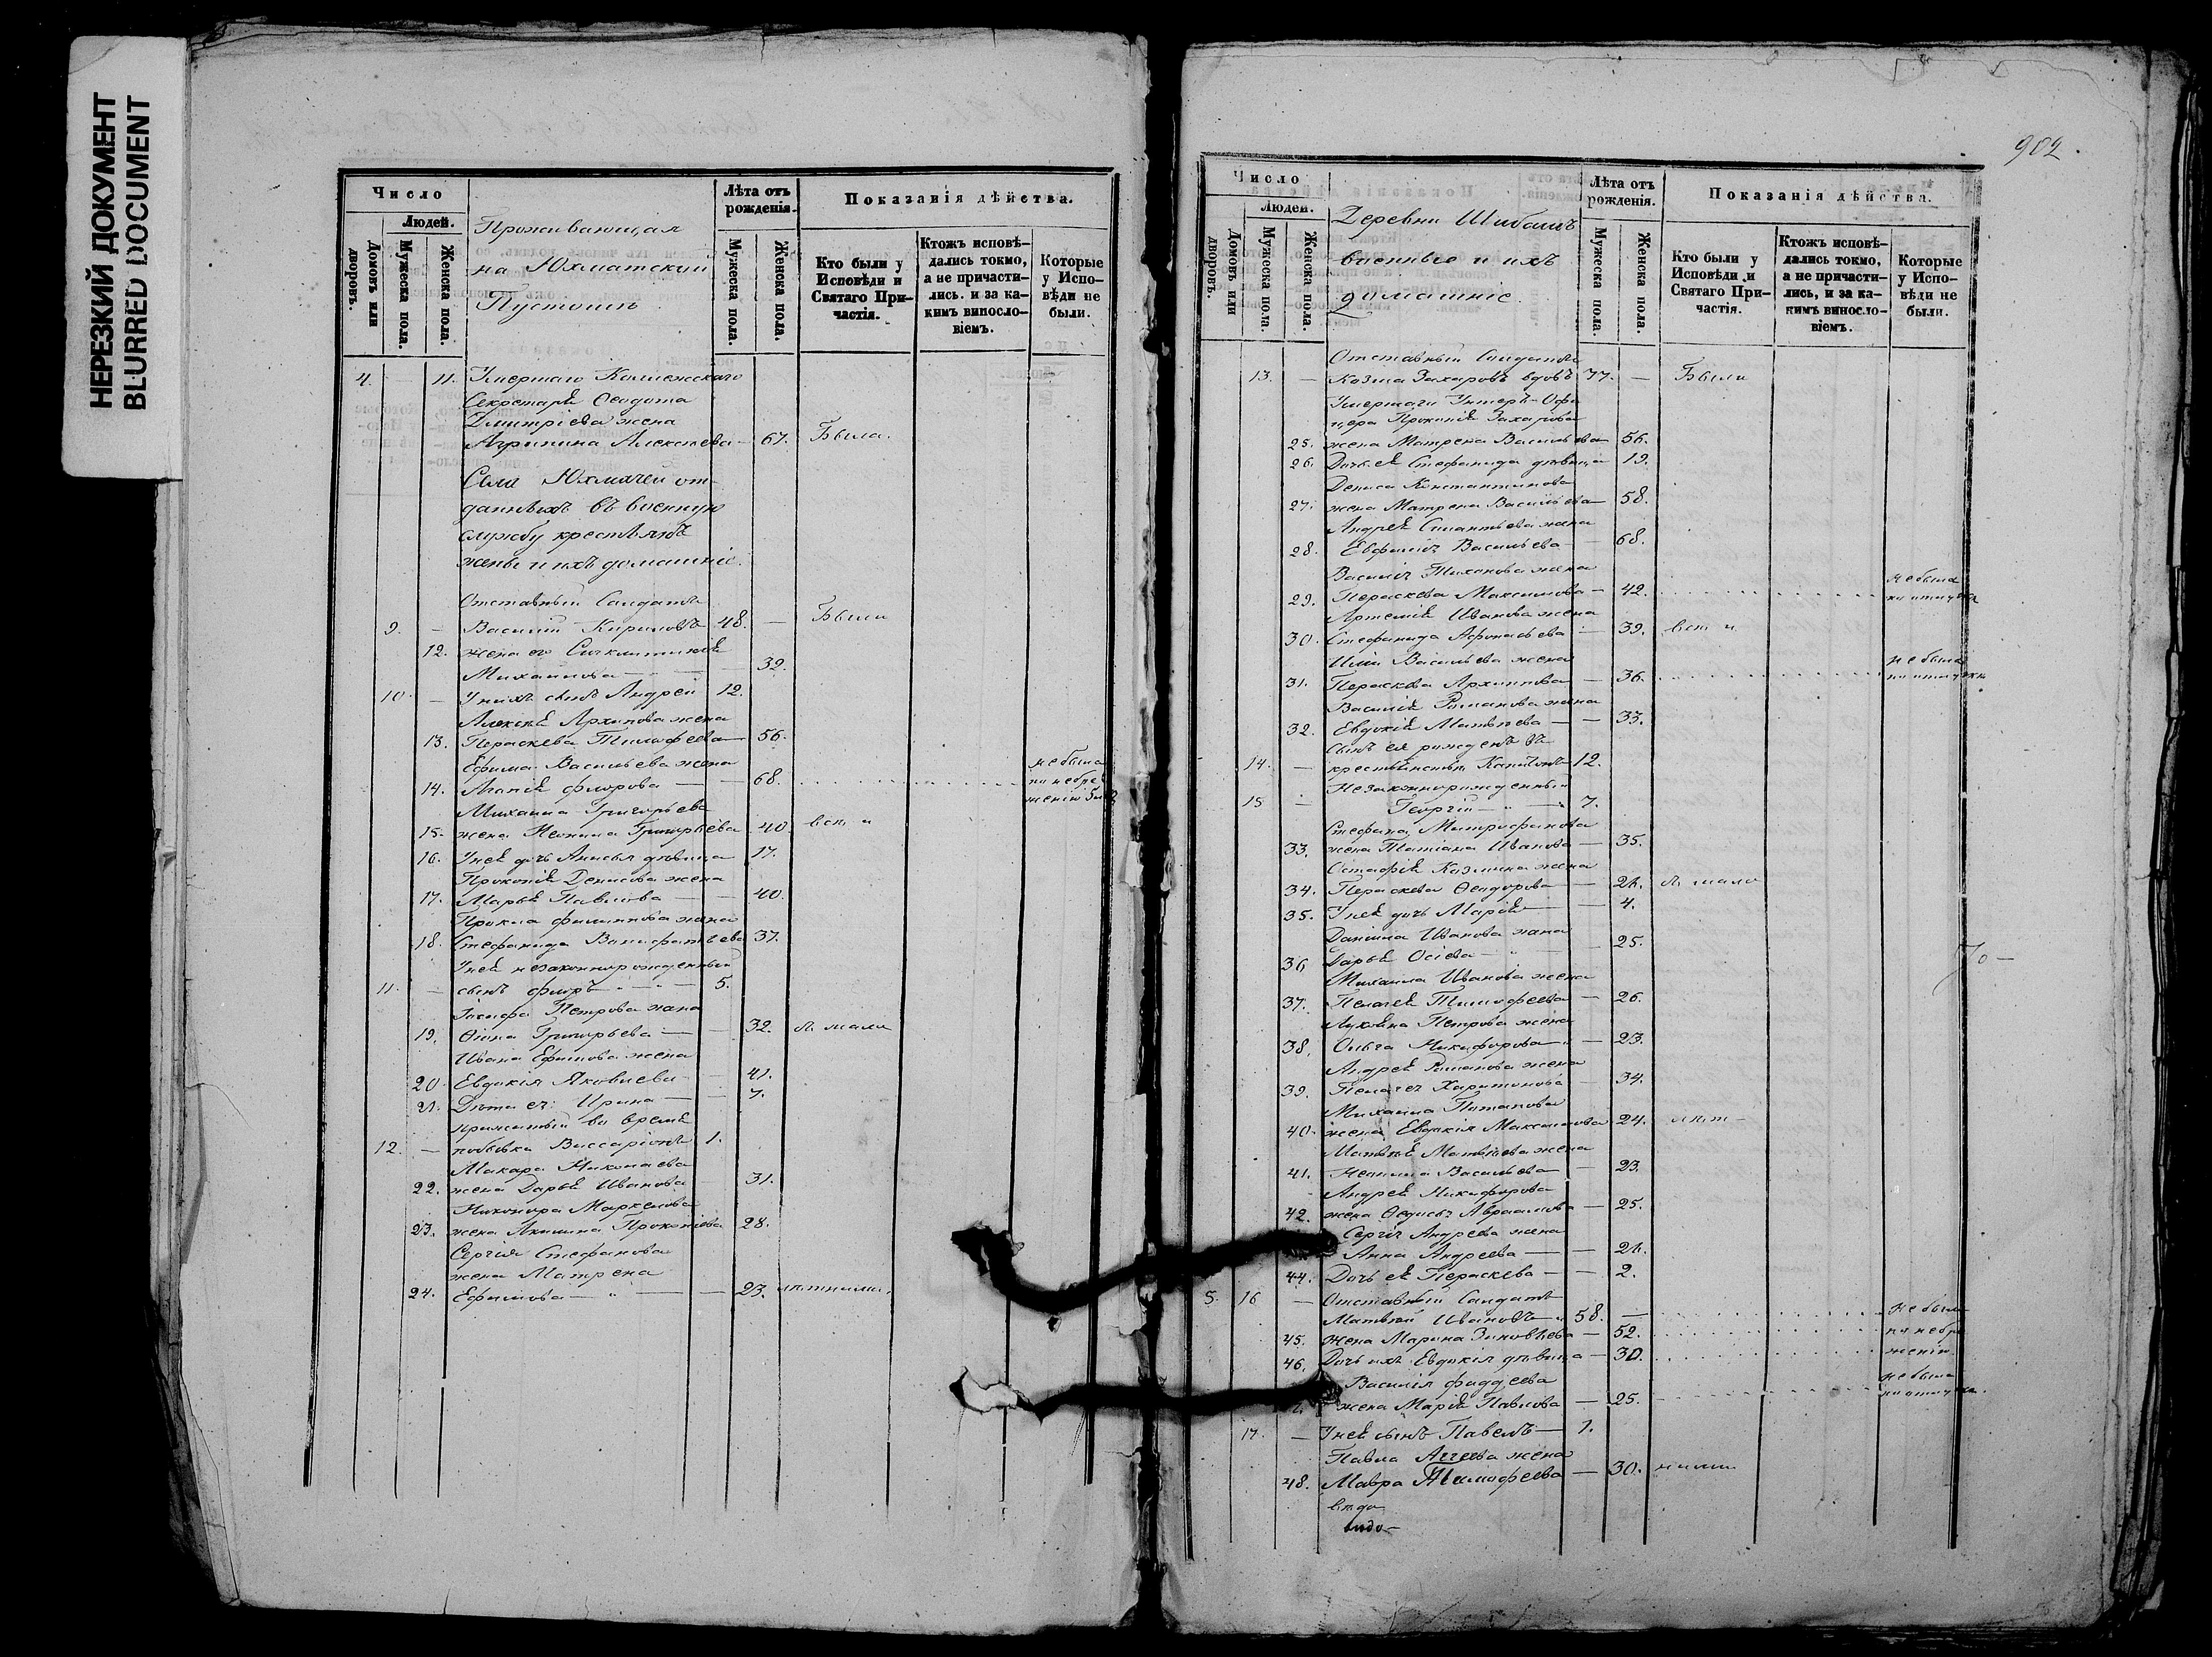 НЕРЕЗКИЙ ДОКУМЕНТ
BLURRED DOCUMENT
Число
Людей.
Домовъ или дворовъ.
Мужеска пола.
Женска пола.
Проживающая
на Юхматский
Пустошѣ
Лѣта отъ рожденія.
Мужеска пола.
Женска пола.
Показанія дѣйства.
Кто были у Исповѣди и Святаго Причастія.
Ктожъ исповѣдались токмо, а не причастились. и за какимъ винословіемъ.
Которые у Исповѣди не были.
4. — 11. Умершаго Коллежскаго
Секретаря Ѳеодота
Дмитріева жена
Агрипина Алексѣева — 67. Была.
Села Юхмачей от-
данныхъ въ военную
службу крестьянъ
жены и ихъ домашніе.
Отставный Солдатъ
9. — Василий Кириловъ 48. — Были
12. жена его
Михайлова — 39.
10. — У нихъ сынъ Андрей 12.
Алексѣя Архипова жена
13. Параскева Тимофеева — 56.
Ефима Васильева жена
14. Агапія Флорова — 68. не была
по небре
женію
Михаила Григорьева
15. жена Неонила Григорьева 40.
16. У нея дочь Анисья дѣвица 17.
Прокопія Денисова жена
17. Марья Павлова — 40.
Прокла Филиппова жена
18. Стефанида Вонифатьева 37.
У нея незаконнорожденный
11. — сынъ Флоръ — 5.
Петрова жена
19. Григорьева — 32.
Ивана Ефимова жена
20. Евдокія Яковлева — 41.
21. Дѣти ея: Ирина — 7.
прижитый во время
12. — побывки Виссаріонъ 1.
Макара Николаева
22. жена Дарья Иванова — 31.
Никонора Маркелова
23. жена Акилина Прокопіева 28.
Сергія Стефанова
жена Матрена
24. Ефимова — 23.
902.
Число
Людей.
Домовъ или дворовъ.
Мужеска пола.
Женска пола.
Деревни Шибашъ
военные и ихъ
домашніе.
Лѣта отъ рожденія.
Мужеска пола.
Женска пола.
Показанія дѣйства.
Кто были у Исповѣди и Святаго Причастія.
Ктожъ исповѣдались токмо, а не причастились, и за какимъ винословіемъ.
Которые у Исповѣди не были.
Отставный Солдатъ
13. — Козма Захаровъ вдовъ 77. — Были
Умершаго Унтеръ-Офи
цера Прокопія Захарова
25. жена Матрена Васильева 56.
26. Дочь ея Стефанида дѣвица 19.
Дениса Константинова
27. жена Матрена Васильева — 58.
Андрея жена
28. Евфимія Васильева — 68.
Василія Тихонова жена
29. Параскева Максимова — 42. не была
по отлучке
Артемія Иванова жена
30. Стефанида Афонасьева — 39.
Иліи Васильева жена
31. Параскева Архипова — 36. не была
по отлучке
Василія Романова жена
32. Евдокія Матвѣева — 33.
Сынъ ея рожденъ въ
14. — крестьянствѣ 12.
Незаконнорожденный
15 — Георгій — 7.
Стефана Митрофанова
33. жена Татіана Иванова — 35.
Остафія Козмина жена
34. Параскева Ѳеодорова — 24.
35. У нея дочь Марія — 4.
Даніила Иванова жена
36 Дарья Осіева — 25.
Михаила Иванова жена
37. Пелагея Тимофеева — 26.
Лукьяна Петрова жена
38. Ольга Никифорова — 23.
Андрея Романова жена
39. Пелагея Харитонова — 34.
Михаила Потапова
40. жена Евдокія Максимова 24.
Матвѣя Матвѣева жена
41. Неонила Васильева — 23.
Андрея Никифорова
42. жена Авраамова — 25.
Сергія Андреева жена
Анна Андреева — 24.
44. Дочь ея Параскева — 2.
5. 16 — Отставный Солдатъ
Матвей Ивановъ 58. — не были
45. Жена Марина Зиновьева — 52. по небре
46. Дочь ихъ Евдокія дѣвица — 30. женію
Василія Фаддеева не была
жена Марія Павлова — 25. по отлучке.
17. — У нея сынъ Павелъ — 1.
Павла Агеева жена
48. Мавра Тимофеева — 30.
вдо-